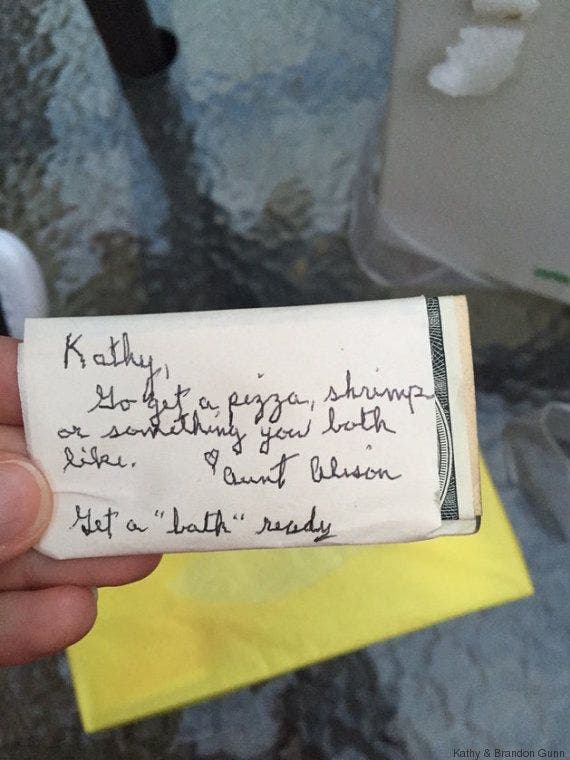 Kathy,
Go get a pizza, shrimp
or something you both
like.
♡ Aunt Alison
Get a "bath" ready
Kathy & Brandon Gunn